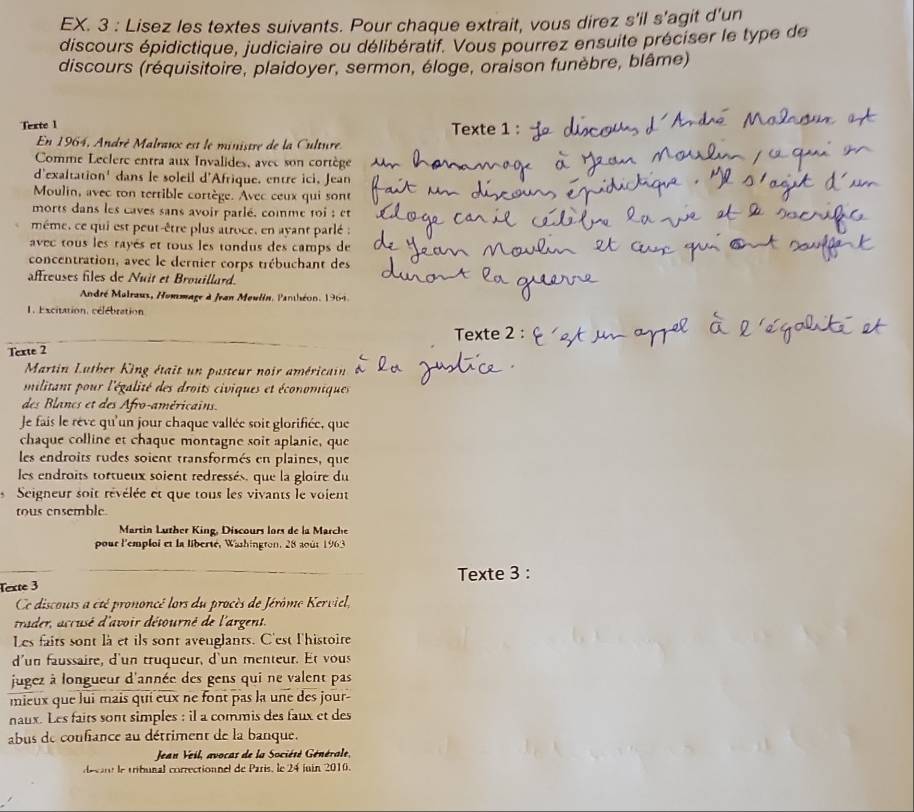 EX. 3 : Lisez les textes suivants. Pour chaque extrait, vous direz s'il s'agit d'un
discours épidictique, judiciaire ou délibératif. Vous pourrez ensuite préciser le type de
discours (réquisitoire, plaidoyer, sermon, éloge, oraison funèbre, blâme)
Texte 1
En 1964, André Malraux est le ministre de la Culture.
Comme Leclerc entra aux Invalides, avec son cortège
d'exaltation¹ dans le soleil d'Afrique, entre ici, Jean
Moulin, avec ton terrible cortège. Avec ceux qui sont
morts dans les caves sans avoir parlé, comme toi ; et
même, ce qui est peut-être plus atroce, en ayant parlé ;
avec tous les rayés et tous les tondus des camps de
concentration, avec le dernier corps trébuchant des
affreuses files de Nuit et Brouillard.
André Malraux, Hommage à Jean Moulin, Panthéon, 1964.
1. Excitation, célébration
Texte 1 : Le discours d'André Malraux est
un hommage à Jean Moulin, ce qui en
fait un discours épidictique. Il s'agit d'un
éloge car il célèbre la vie et le sacrifice
de Jean Moulin et ceux qui ont souffert
durant la guerre
Texte 2
Martin Luther King était un pasteur noir américain
militant pour l'égalité des droits civiques et économiques
des Blancs et des Afro-américains.
Je fais le rêve qu'un jour chaque vallée soit glorifiée, que
chaque colline et chaque montagne soit aplanie, que
les endroits rudes soient transformés en plaines, que
les endroits tortueux soient redressés, que la gloire du
5 Seigneur soit révélée et que tous les vivants le voient
tous ensemble.
Martin Luther King, Discours lors de la Marche
pour l'emploi et la liberté, Washington, 28 août 1963
Texte 2 : C'est un appel à l'égalité et
à la justice.
Texte 3
Ce discours a été prononcé lors du procès de Jérôme Kerviel,
trader, accusé d'avoir détourné de l'argent.
Les faits sont là et ils sont aveuglants. C'est l'histoire
d'un faussaire, d'un truqueur, d'un menteur. Et vous
jugez à longueur d'année des gens qui ne valent pas
mieux que lui mais qui eux ne font pas la une des jour-
naux. Les faits sont simples : il a commis des faux et des
abus de confiance au détriment de la banque.
Jean Veil, avocat de la Société Générale,
devant le tribunal correctionnel de Paris, le 24 juin 2010.
Texte 3 :